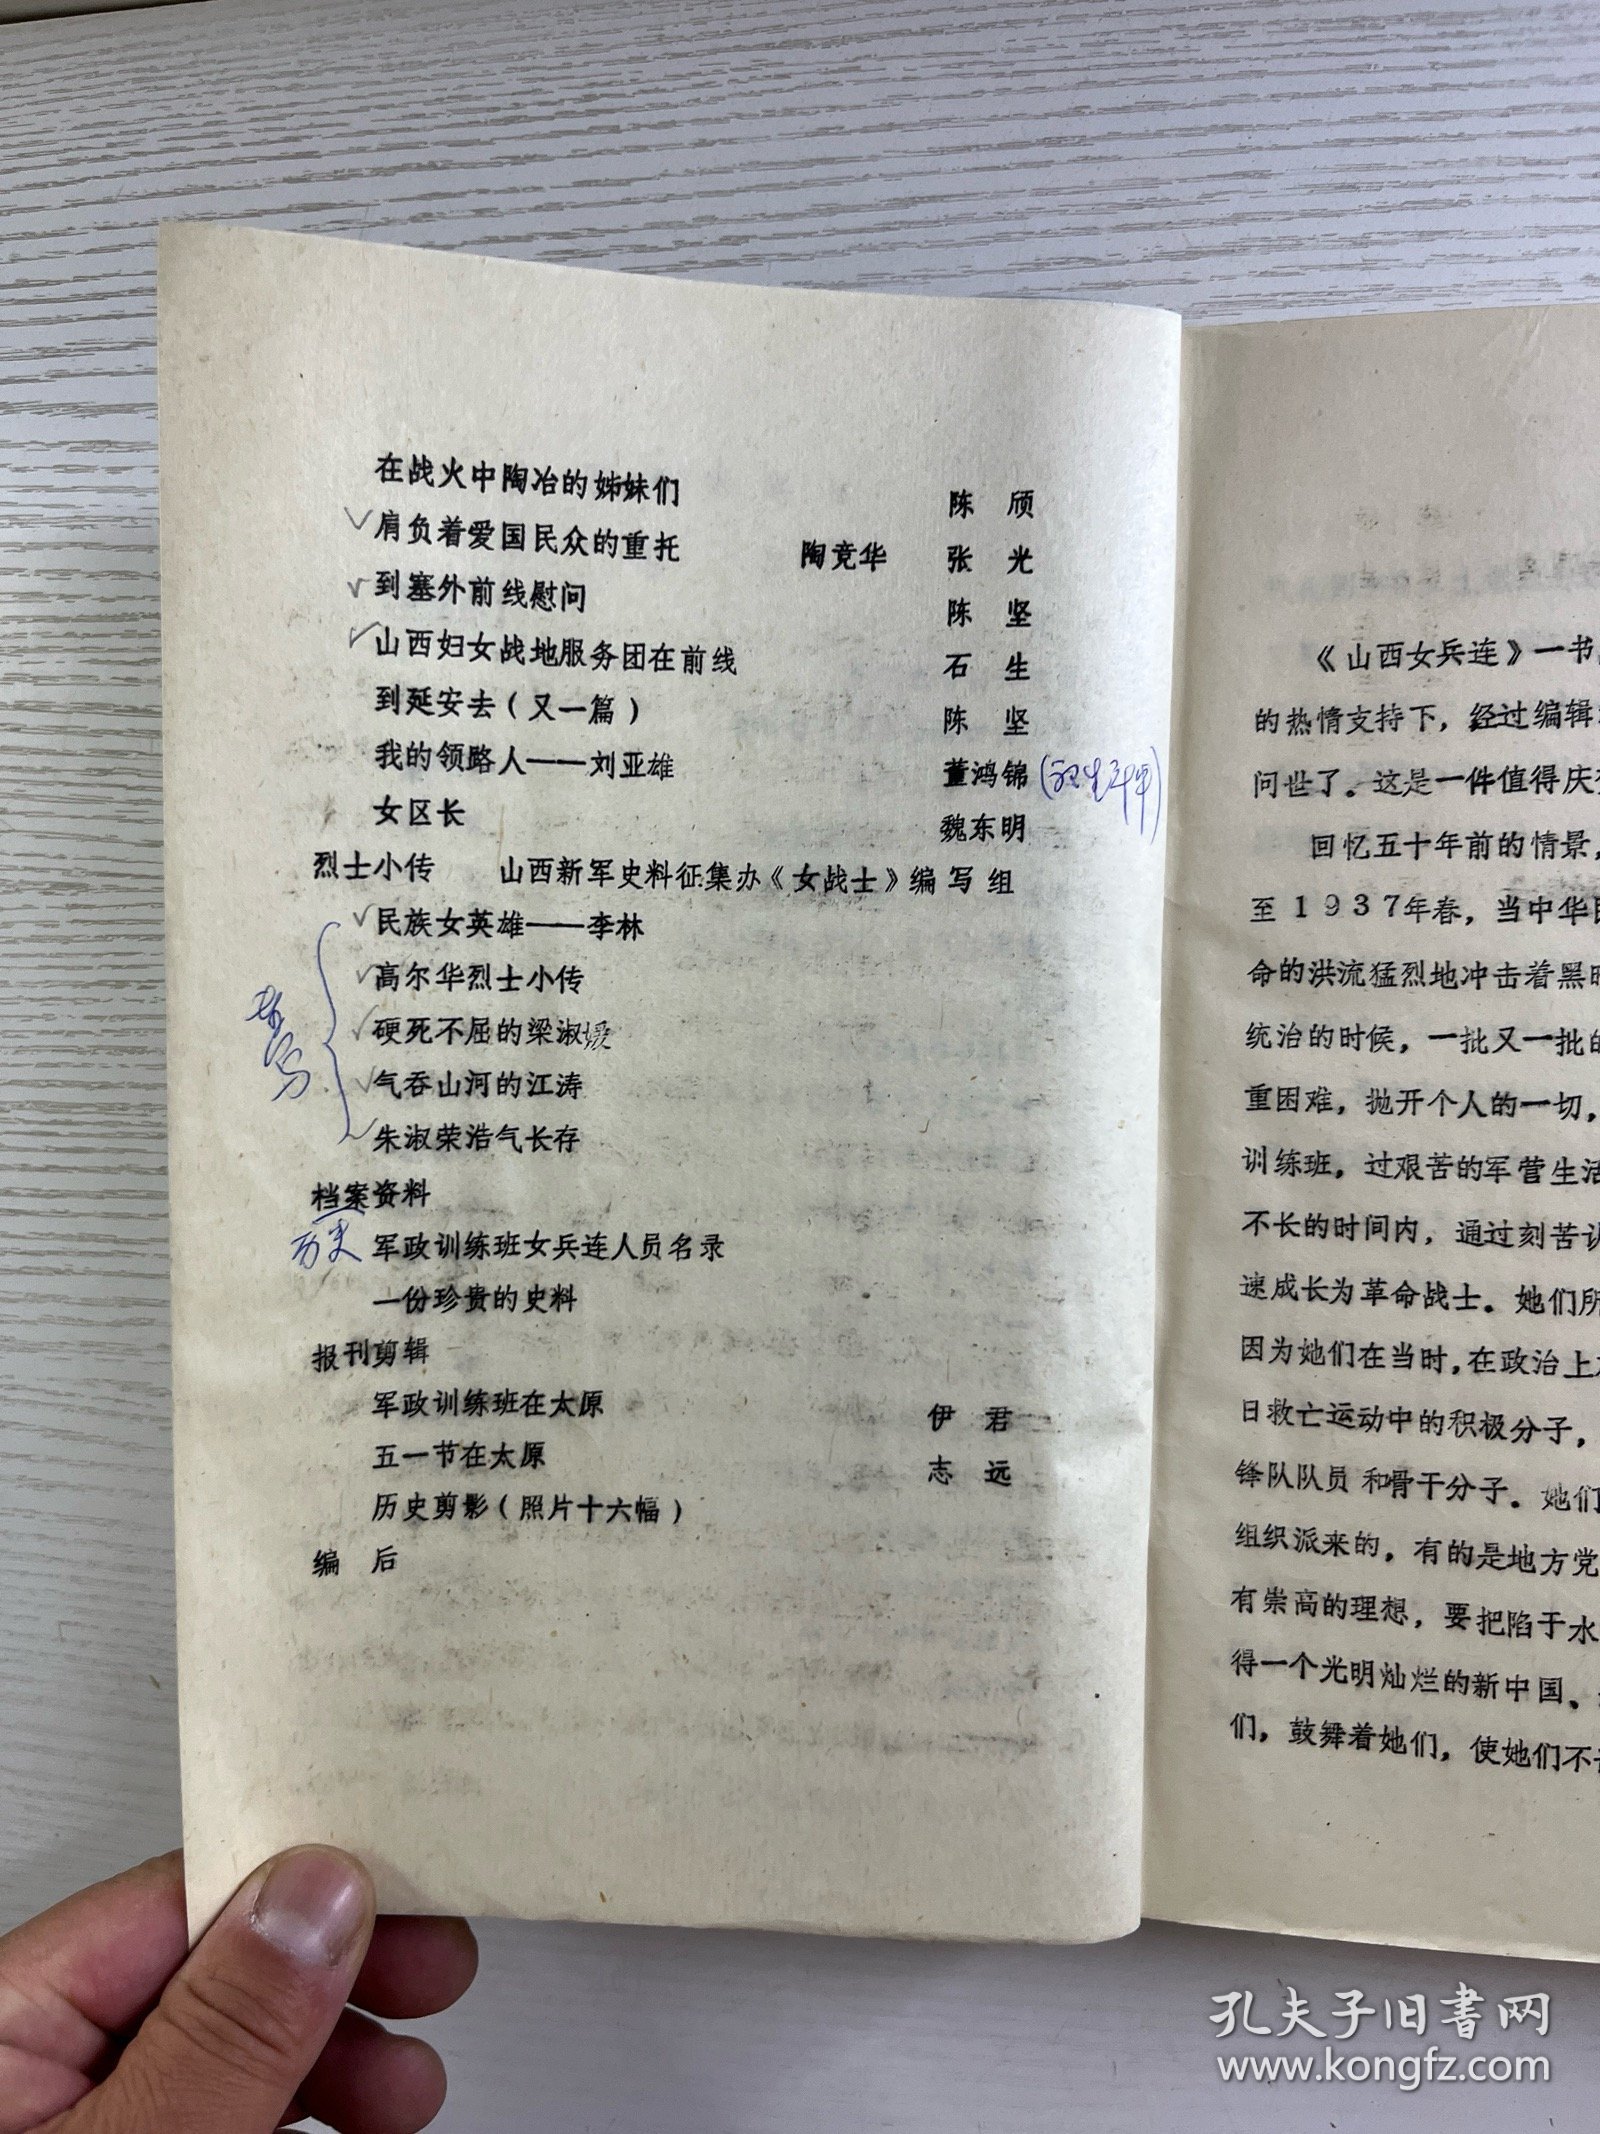 在战火中陶冶的姊妹们 陈 颀
肩负着爱国民众的重托 陶竞华 张 光
到塞外前线慰问 陈 坚
山西妇女战地服务团在前线 石 生
到延安去（又一篇） 陈 坚
我的领路人——刘亚雄 董鸿锦
女区长 魏东明
烈士小传 山西新军史料征集办《女战士》编写组
民族女英雄——李林
高尔华烈士小传
硬死不屈的梁淑媛
气吞山河的江涛
朱淑荣浩气长存
档案资料
历史
军政训练班女兵连人员名录
一份珍贵的史料
报刊剪辑
军政训练班在太原 伊 君
五一节在太原 志 远
历史剪影（照片十六幅）
编 后
《山西女兵连》一书
的热情支持下，经过编辑
问世了。这是一件值得庆
回忆五十年前的情景，
至1937年春，当中华
命的洪流猛烈地冲击着黑
统治的时候，一批又一批
重困难，抛开个人的一切，
训练班，过艰苦的军营生活
不长的时间内，通过刻苦
速成长为革命战士。她们所
因为她们在当时，在政治上
日救亡运动中的积极分子，
锋队队员和骨干分子。她们
组织派来的，有的是地方党
有崇高的理想，要把陷于水
得一个光明灿烂的新中国。
们，鼓舞着她们，使她们不
孔夫子旧書网
www.kongfz.com